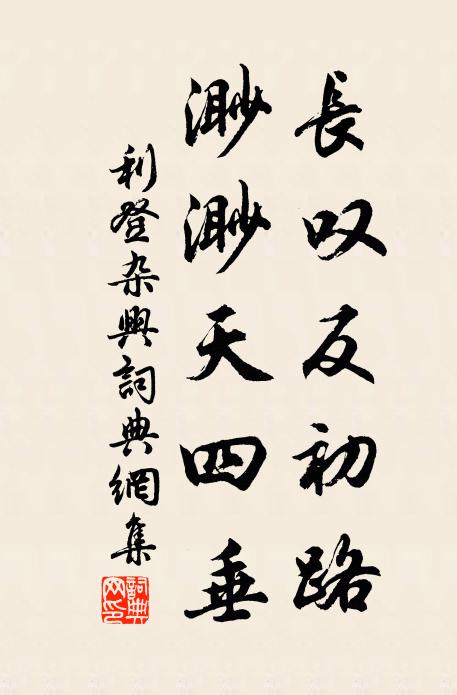 長叹反初路
渺渺天四垂
利登杂興詞典網集
詞典网印